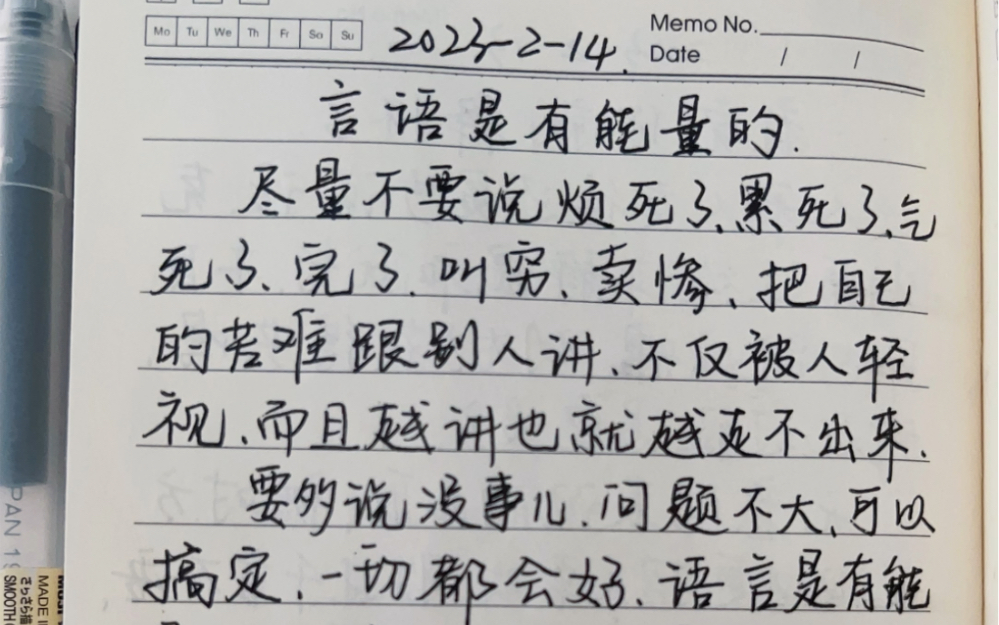 Mo Tu We Th Fr Sa Su
2023-2-14.
Memo No.
Date / /
言语是有能量的.
尽量不要说烦死了、累死了、气
死了、完了、叫穷、卖惨、把自己
的苦难跟别人讲、不仅被人轻
视、而且越讲也就越走不出来.
要多说没事儿、问题不大、可以
搞定、一切都会好、语言是有能
PAN
MADE I
さらさら描
SMOOTH